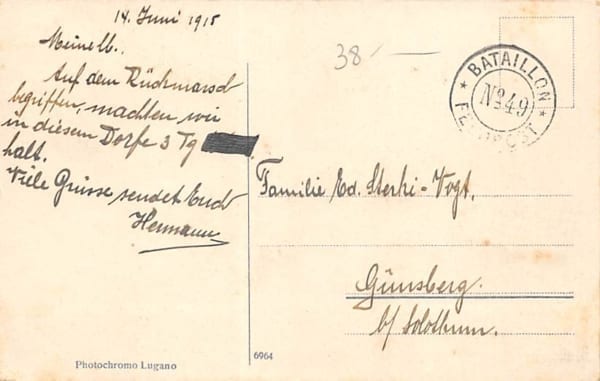 14. Juni 1915
38
Meine lb.,
Auf dem Rückmarsch
begriffen, machten wir
in diesem Dorfe 3 Tg
halt.
Viele Grüsse sendet Euch
Hermann
BATAILLON
No 49
FELDPOST
Familie Ed. Sterki-Vogt,
Günsberg.
b/ Solothurn.
Photochromo Lugano
6964